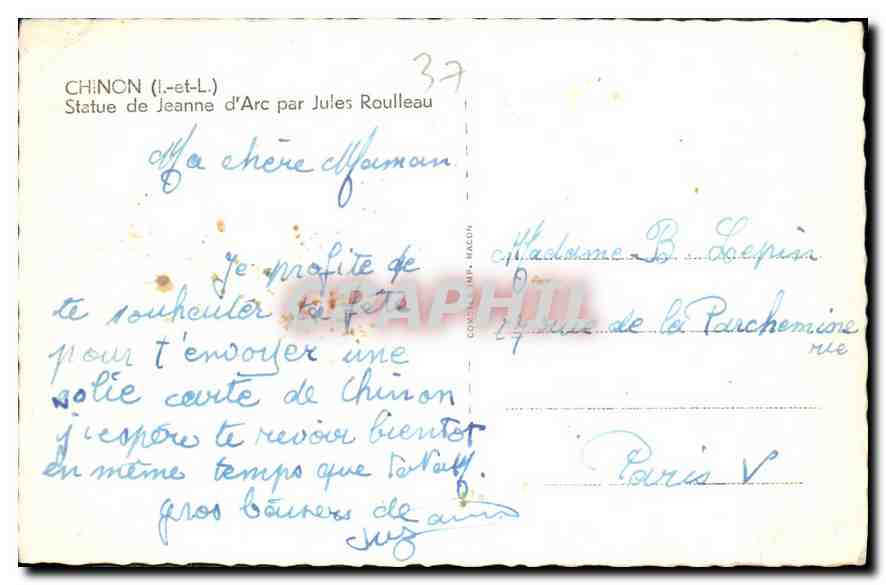 37
CHINON (I.-et-L.)
Statue de Jeanne d'Arc par Jules Roulleau
Ma chère Maman
Je profite de
te souheuter ta fête
pour t'envoyer une
jolie carte de Chinon
j'espére te revoir bientot
en même temps que
gros baisers de
Suzanne
IMP. MACON
CPAPHIL
Madame B. Lepin
27 rue de la Parchemine
rie
Paris V